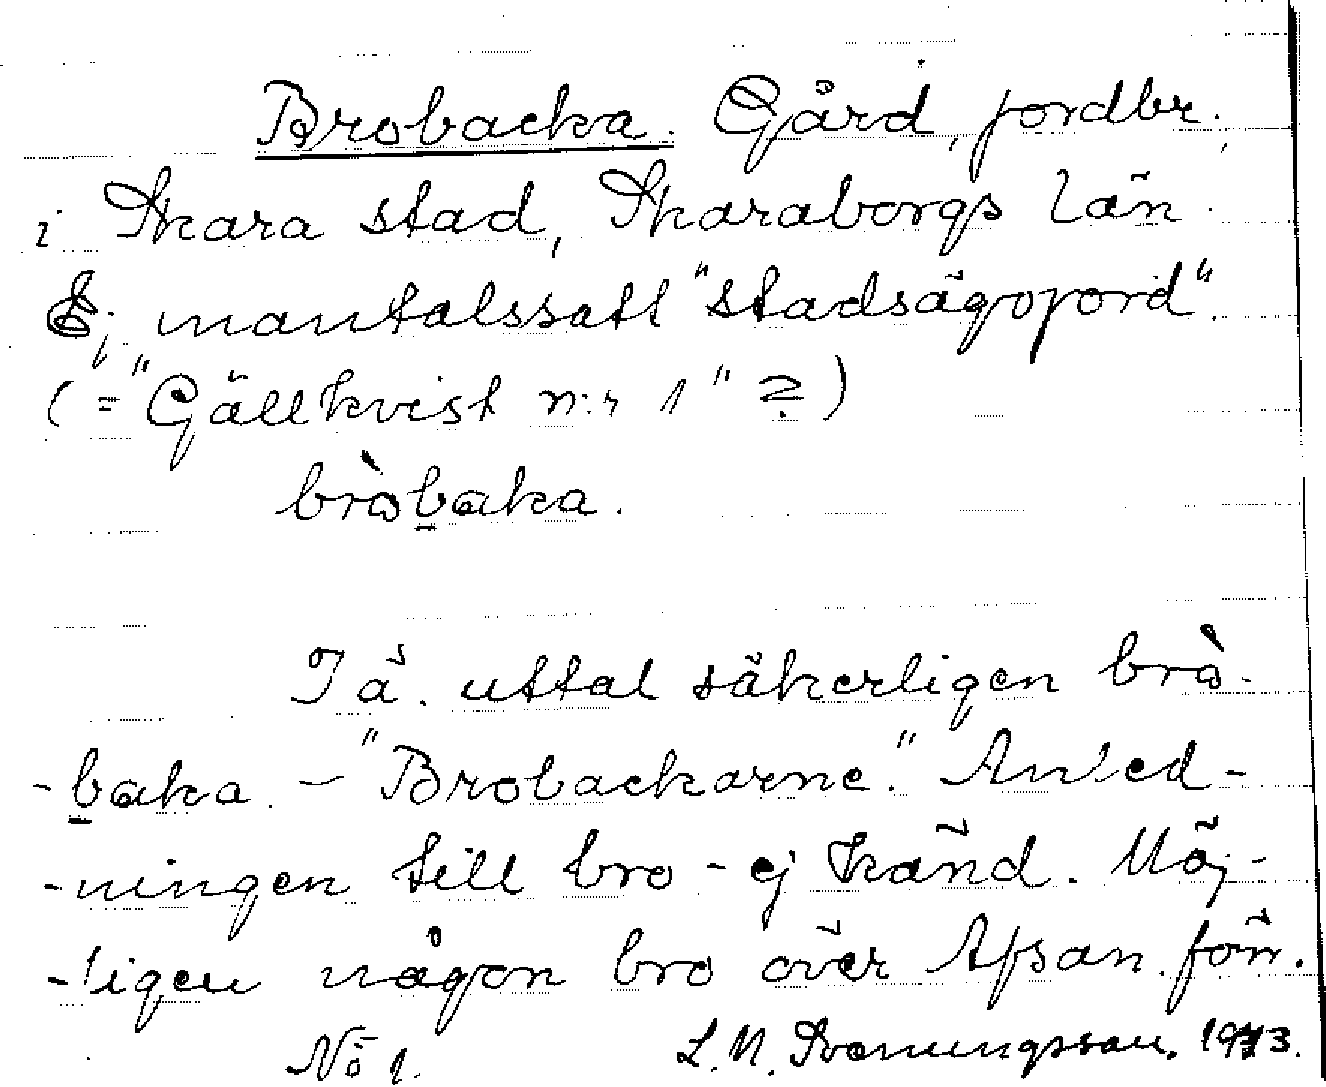 Brobacka. Gård, jordbr.,
i Skara stad, Skaraborgs län.
Ej mantalssatt "stadsägojord".
(= "Gällkvist n:r 1" ?)
bròbaka.
Iä. uttal säkerligen brò-
-baka. – "Brobackarne." Anled-
-ningen till bro - ej känd. Möj-
-ligen någon bro över Afsan förr.
No 1. L. N. Svanungsson. 1913.